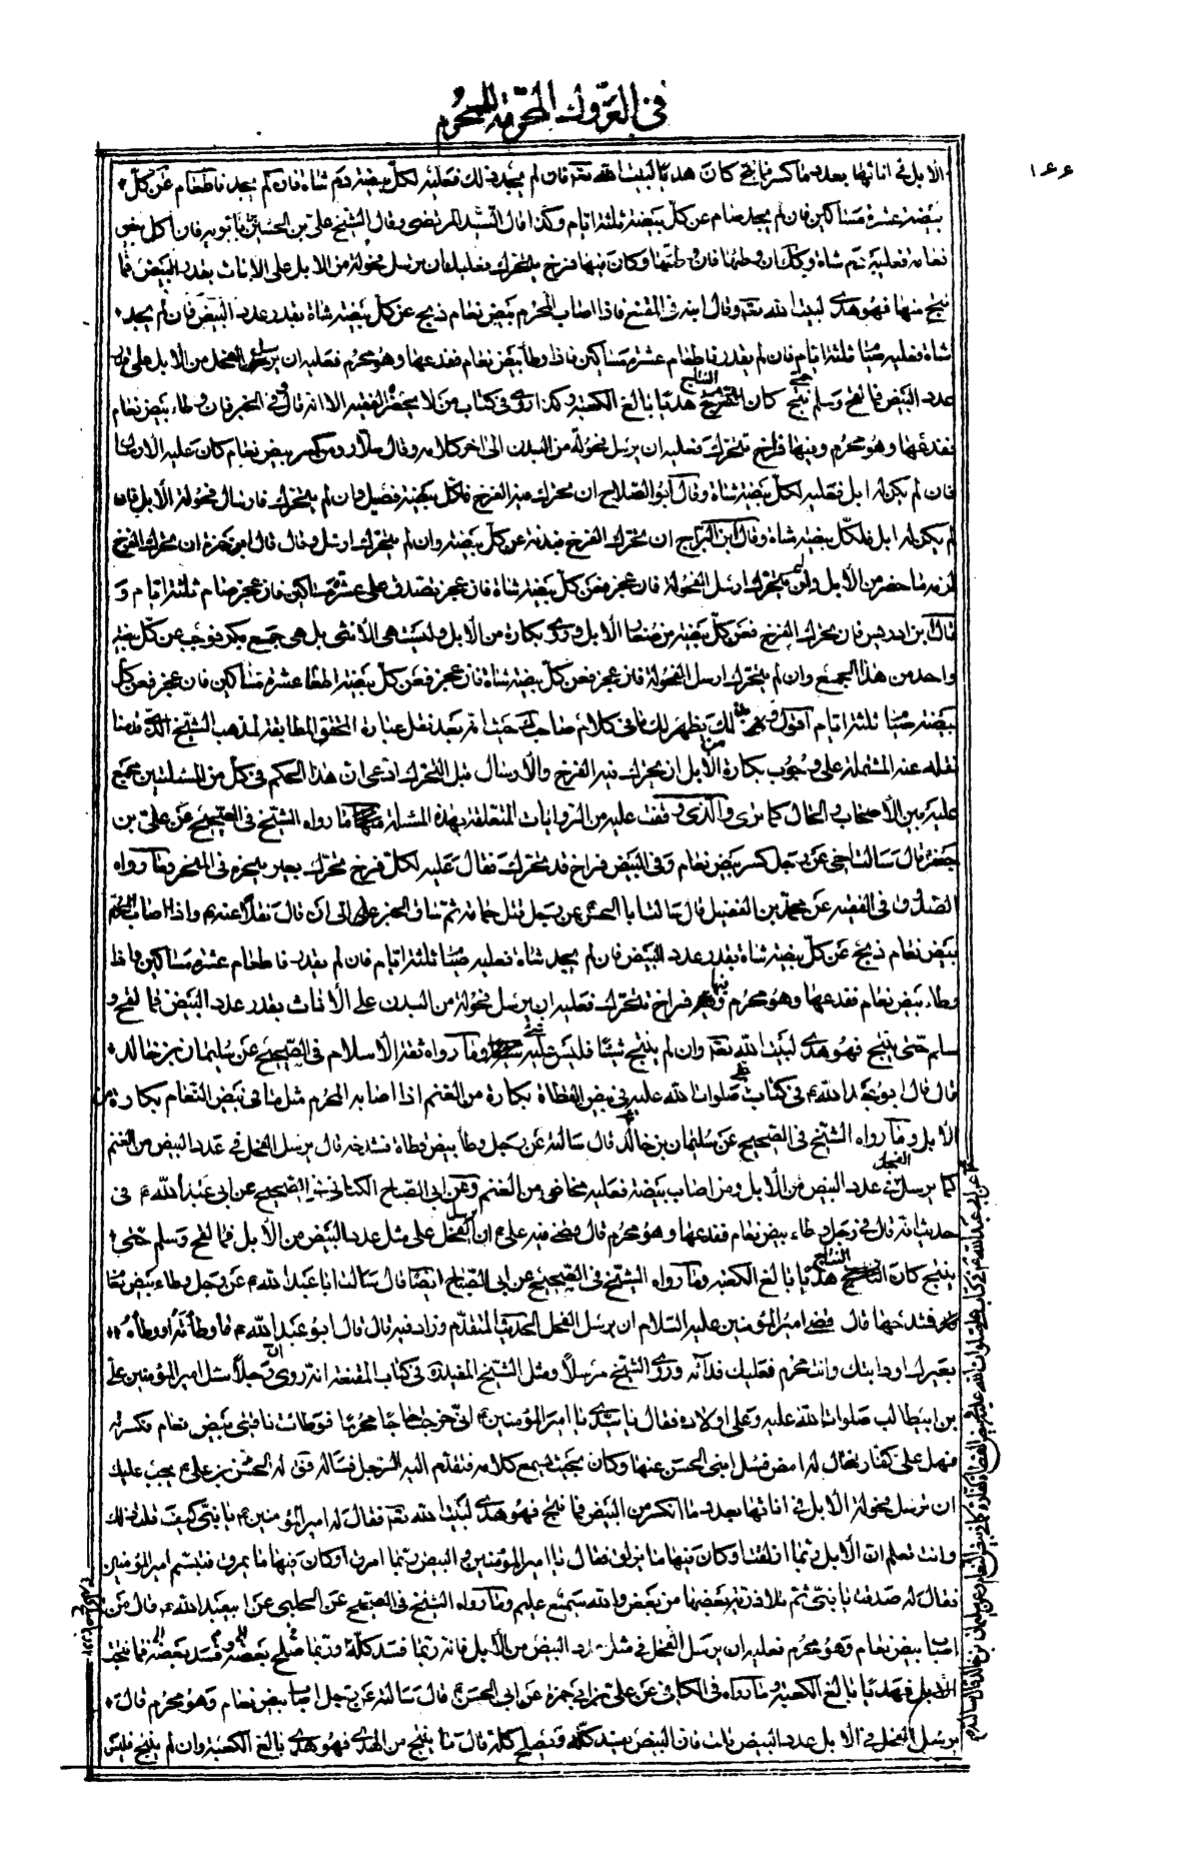 في التروك المحرمة للمحرم
١٤٤
الابل في اناثها بعدد ما كسر فما نتج كان هديا لبيت الله تعه فان لم يجد ذلك فعليه لكل بيضة دم شاة فان لم يجد فاطعام عن كل
بيضة عشرة مساكين فان لم يجد صام عن كل بيضة ثلثة ايام وكذا قال السيد المرتضى وقال الشيخ علي بن الحسين بن بابويه فان اكل بيض
نعامة فعليه دم شاة وكك ان وطئها فان وطئها وكان فيها فرخ يتحرك فعليه ان يرسل فحولة من الابل على الاناث بقدر عدد البيض فما
نتج منها فهو هدي لبيت الله تعه وقال ابنه في المقنع فاذا اصاب المحرم بيض نعام ذبح عن كل بيضة شاة بقدر عدد البيض فان لم يجد
شاة فعليه صيام ثلثة ايام فان لم يقدر فاطعام عشرة مساكين فاذا وطأ بيض نعام ففدغها وهو محرم فعليه ان يرسل الفحل من الابل على قدر
عدد البيض فما لقح وسلم حتى ينتج كان النتاج هديا بالغ الكعبة وكذا روى في كتاب من لا يحضره الفقيه الا انه قال في الخبر فان وطاء بيض نعام
ففدغها وهو محرم وفيها فراخ تتحرك فعليه ان يرسل فحولة من البدن الى اخر كلامه وقال سلار ومن كسر بيض نعام كان عليه الارسال
فان لم يكن له ابل فعليه لكل بيضة شاة وقال ابو الصلاح ان تحرك فيه الفرخ فلكل بيضة فصيل وان لم يتحرك فارسال فحولة الابل فان
لم يكن له ابل فلكل بيضة شاة وقال ابن البراج ان تحرك الفرخ فبدنة عن كل بيضة وان لم يتحرك ارسل وقال قال ابن حمزة ان تحرك الفرخ
لزمه ما حضر من الابل وان لم يتحرك ارسل الفحولة فان عجز فعن كل بيضة شاة فان عجز تصدق على عشرة مساكين فان عجز صام ثلثة ايام و
قال ابن ادريس فان تحرك الفرخ فعن كل بيضة من صغار الابل وروى بكارة من الابل وليست هي الانثى بل هي جمع بكر فوجب عن كل بيضة
واحد من هذا الجمع وان لم يتحرك ارسل الفحولة فان عجز فعن كل بيضة شاة فان عجز فعن كل بيضة اطعام عشرة مساكين فان عجز فعن كل
بيضة صيام ثلثة ايام اقول لك يظهر لك ما في كلام صاحب حيث انه بعد نقل عبارة المحقق المطابقة لمذهب الشيخ الذي قدمنا
نقله عنه المشتملة على وجوب بكارة من الابل ان تحرك فيه الفرخ والارسال قبل التحرك ادعى ان هذا الحكم في كل من المسئلتين مجمع
عليه بين الاصحاب والحال كما ترى والذي وقفت عليه من الروايات المتعلقة بهذه المسئلة ما رواه الشيخ في الصحيح عن علي بن
جعفر قال سالت اخي عن رجل كسر بيض نعام وفي البيض فراخ قد تحرك فقال عليه لكل فرخ تحرك بعير ينحره في المنحر وما رواه
الصدوق في الفقيه عن محمد بن الفضيل قال سالت ابا الحسن عن رجل قتل حمامة ثم ساق الخبر الى ان قال نقلا عنه ع واذا اصاب المحرم
بيض نعام ذبح عن كل بيضة شاة بقدر عدد البيض فان لم يجد شاة فعليه صيام ثلثة ايام فان لم يقدر فاطعام عشرة مساكين واذا
وطاء بيض نعام ففدغها وهو محرم وفيها فراخ تتحرك فعليه ان يرسل فحولة من البدن على الاناث بقدر عدد البيض فما لقح و
سلم حتى ينتج فهو هدي لبيت الله تعه وان لم ينتج شيئا فليس عليه شيء وما رواه ثقة الاسلام في الصحيح عن سليمان بن خالد
قال قال ابو عبد الله ع في كتاب علي صلوات الله عليه في بيض القطاة بكارة من الغنم اذا اصابه المحرم مثل ما في بيض النعام بكارة من
الابل وما رواه الشيخ في الصحيح عن سليمان بن خالد قال سالته عن رجل وطأ بيض قطاة فشدخه قال يرسل الفحل في عدد البيض من الغنم
كما يرسل الفحل عدد البيض من الابل ومن اصاب بيضة فعليه مخاض من الغنم وعن ابي الصباح الكناني في الصحيح عن ابي عبد الله ع في
حديث انه قال في رجل وطاء بيض نعام ففدغها وهو محرم قال قضى فيه علي ع ان يرسل الفحل على مثل عدد البيض من الابل فما لقح وسلم حتى
ينتج كان النتاج هديا بالغ الكعبة وما رواه الشيخ في الصحيح عن ابي الصباح ايضا قال سالت ابا عبد الله ع عن رجل وطاء بيض نعام
فشدخها قال قضى امير المؤمنين عليه السلام ان يرسل الفحل الحديث المتقدم وزاد فيه قال قال ابو عبد الله ع ما وطأته او وطأه
بعيرك او دابتك وانت محرم فعليك فدائه وروى الشيخ مرسلا ومثل الشيخ المفيد في كتاب المقنعة انه روى ان رجلا سئل امير المؤمنين علي
بن ابيطالب صلوات الله عليه وعلى اولاده فقال يا سيدي يا امير المؤمنين اني خرجت حاجا محرما فوطات ناقتي بيض نعام فكسرته
فهل علي كفارة فقال له امض فسل ابني الحسن عنها وكان بحيث يسمع كلامه فتقدم اليه الرجل فسأله فق له الحسن بن علي ع يجب عليك
ان ترسل فحولة الابل في اناثها بعدد ما انكسر من البيض فما نتج فهو هدي لبيت الله تعه فقال له امير المؤمنين ع يا بني كيف قلت ذلك
وانت تعلم ان الابل ربما ازلقت او كان فيها ما يزلق فقال يا امير المؤمنين والبيض ربما امرق او كان فيها ما يمرق فتبسم امير المؤمنين
فقال له صدقت يا بني ثم تلا ذرية بعضها من بعض والله سميع عليم وما رواه الشيخ في الصحيح عن الحلبي عن ابيعبد الله ع قال من
اصاب بيض نعام وهو محرم فعليه ان يرسل الفحل في مثل عدد البيض من الابل فانه ربما فسد كله وربما صلح بعضه وفسد بعضه فما نتجت
الابل فهديا بالغ الكعبة وما رواه في الكافي عن علي بن ابي حمزة عن ابي الحسن ع قال سالته عن رجل اصاب بيض نعام وهو محرم قال
يرسل الفحل في الابل عدد البيض قلت فان البيض يفسد كله ويصلح كله قال ما ينتج من الهدي فهو هدي بالغ الكعبة وان لم ينتج فليس